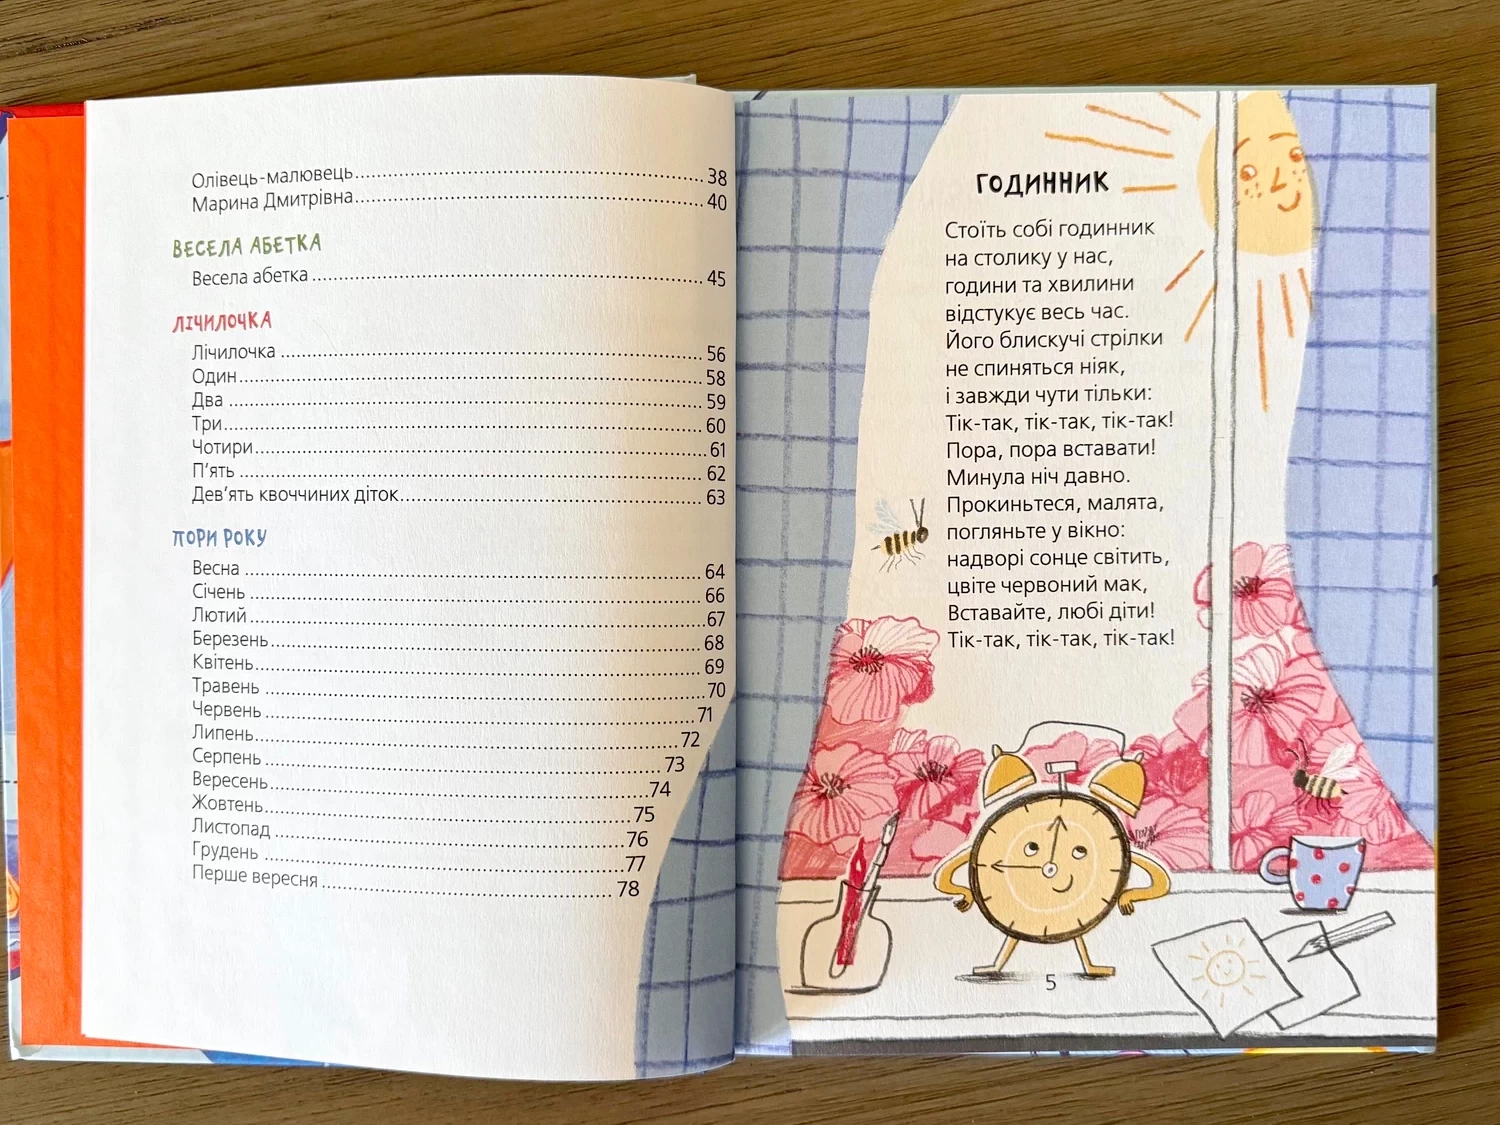 Олівець-малювець 38
Марина Дмитрівна 40
ВЕСЕЛА АБЕТКА
Весела абетка 45
ЛІЧИЛОЧКА
Лічилочка 56
Один 58
Два 59
Три 60
Чотири 61
П'ять 62
Дев'ять квоччиних діток 63
ПОРИ РОКУ
Весна 64
Січень 66
Лютий 67
Березень 68
Квітень 69
Травень 70
Червень 71
Липень 72
Серпень 73
Вересень 74
Жовтень 75
Листопад 76
Грудень 77
Перше вересня 78
ГОДИННИК
Стоїть собі годинник
на столику у нас,
години та хвилини
відстукує весь час.
Його блискучі стрілки
не спиняться ніяк,
і завжди чути тільки:
Тік-так, тік-так, тік-так!
Пора, пора вставати!
Минула ніч давно.
Прокиньтеся, малята,
погляньте у вікно:
надворі сонце світить,
цвіте червоний мак,
Вставайте, любі діти!
Тік-так, тік-так, тік-так!
5